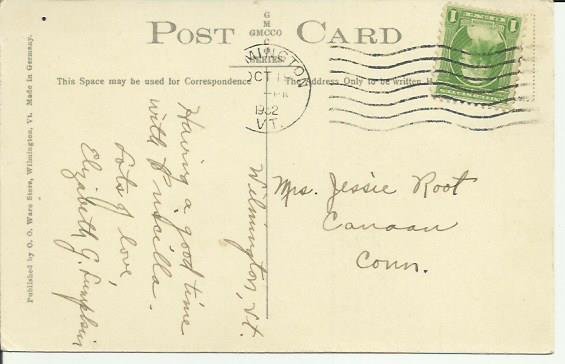 POST CARD
G
M
GMCCO
C
SERIES
This Space may be used for Correspondence
The Address Only to be written
WILMINGTON
OCT
1932
VT.
1
Published by O. O. Ware Store, Wilmington, Vt. Made in Germany.
Wilmington, Vt.
Having a good time
with Priscilla.
Lots of love,
Elizabeth G.
Mrs. Jessie Root
Canaan
Conn.